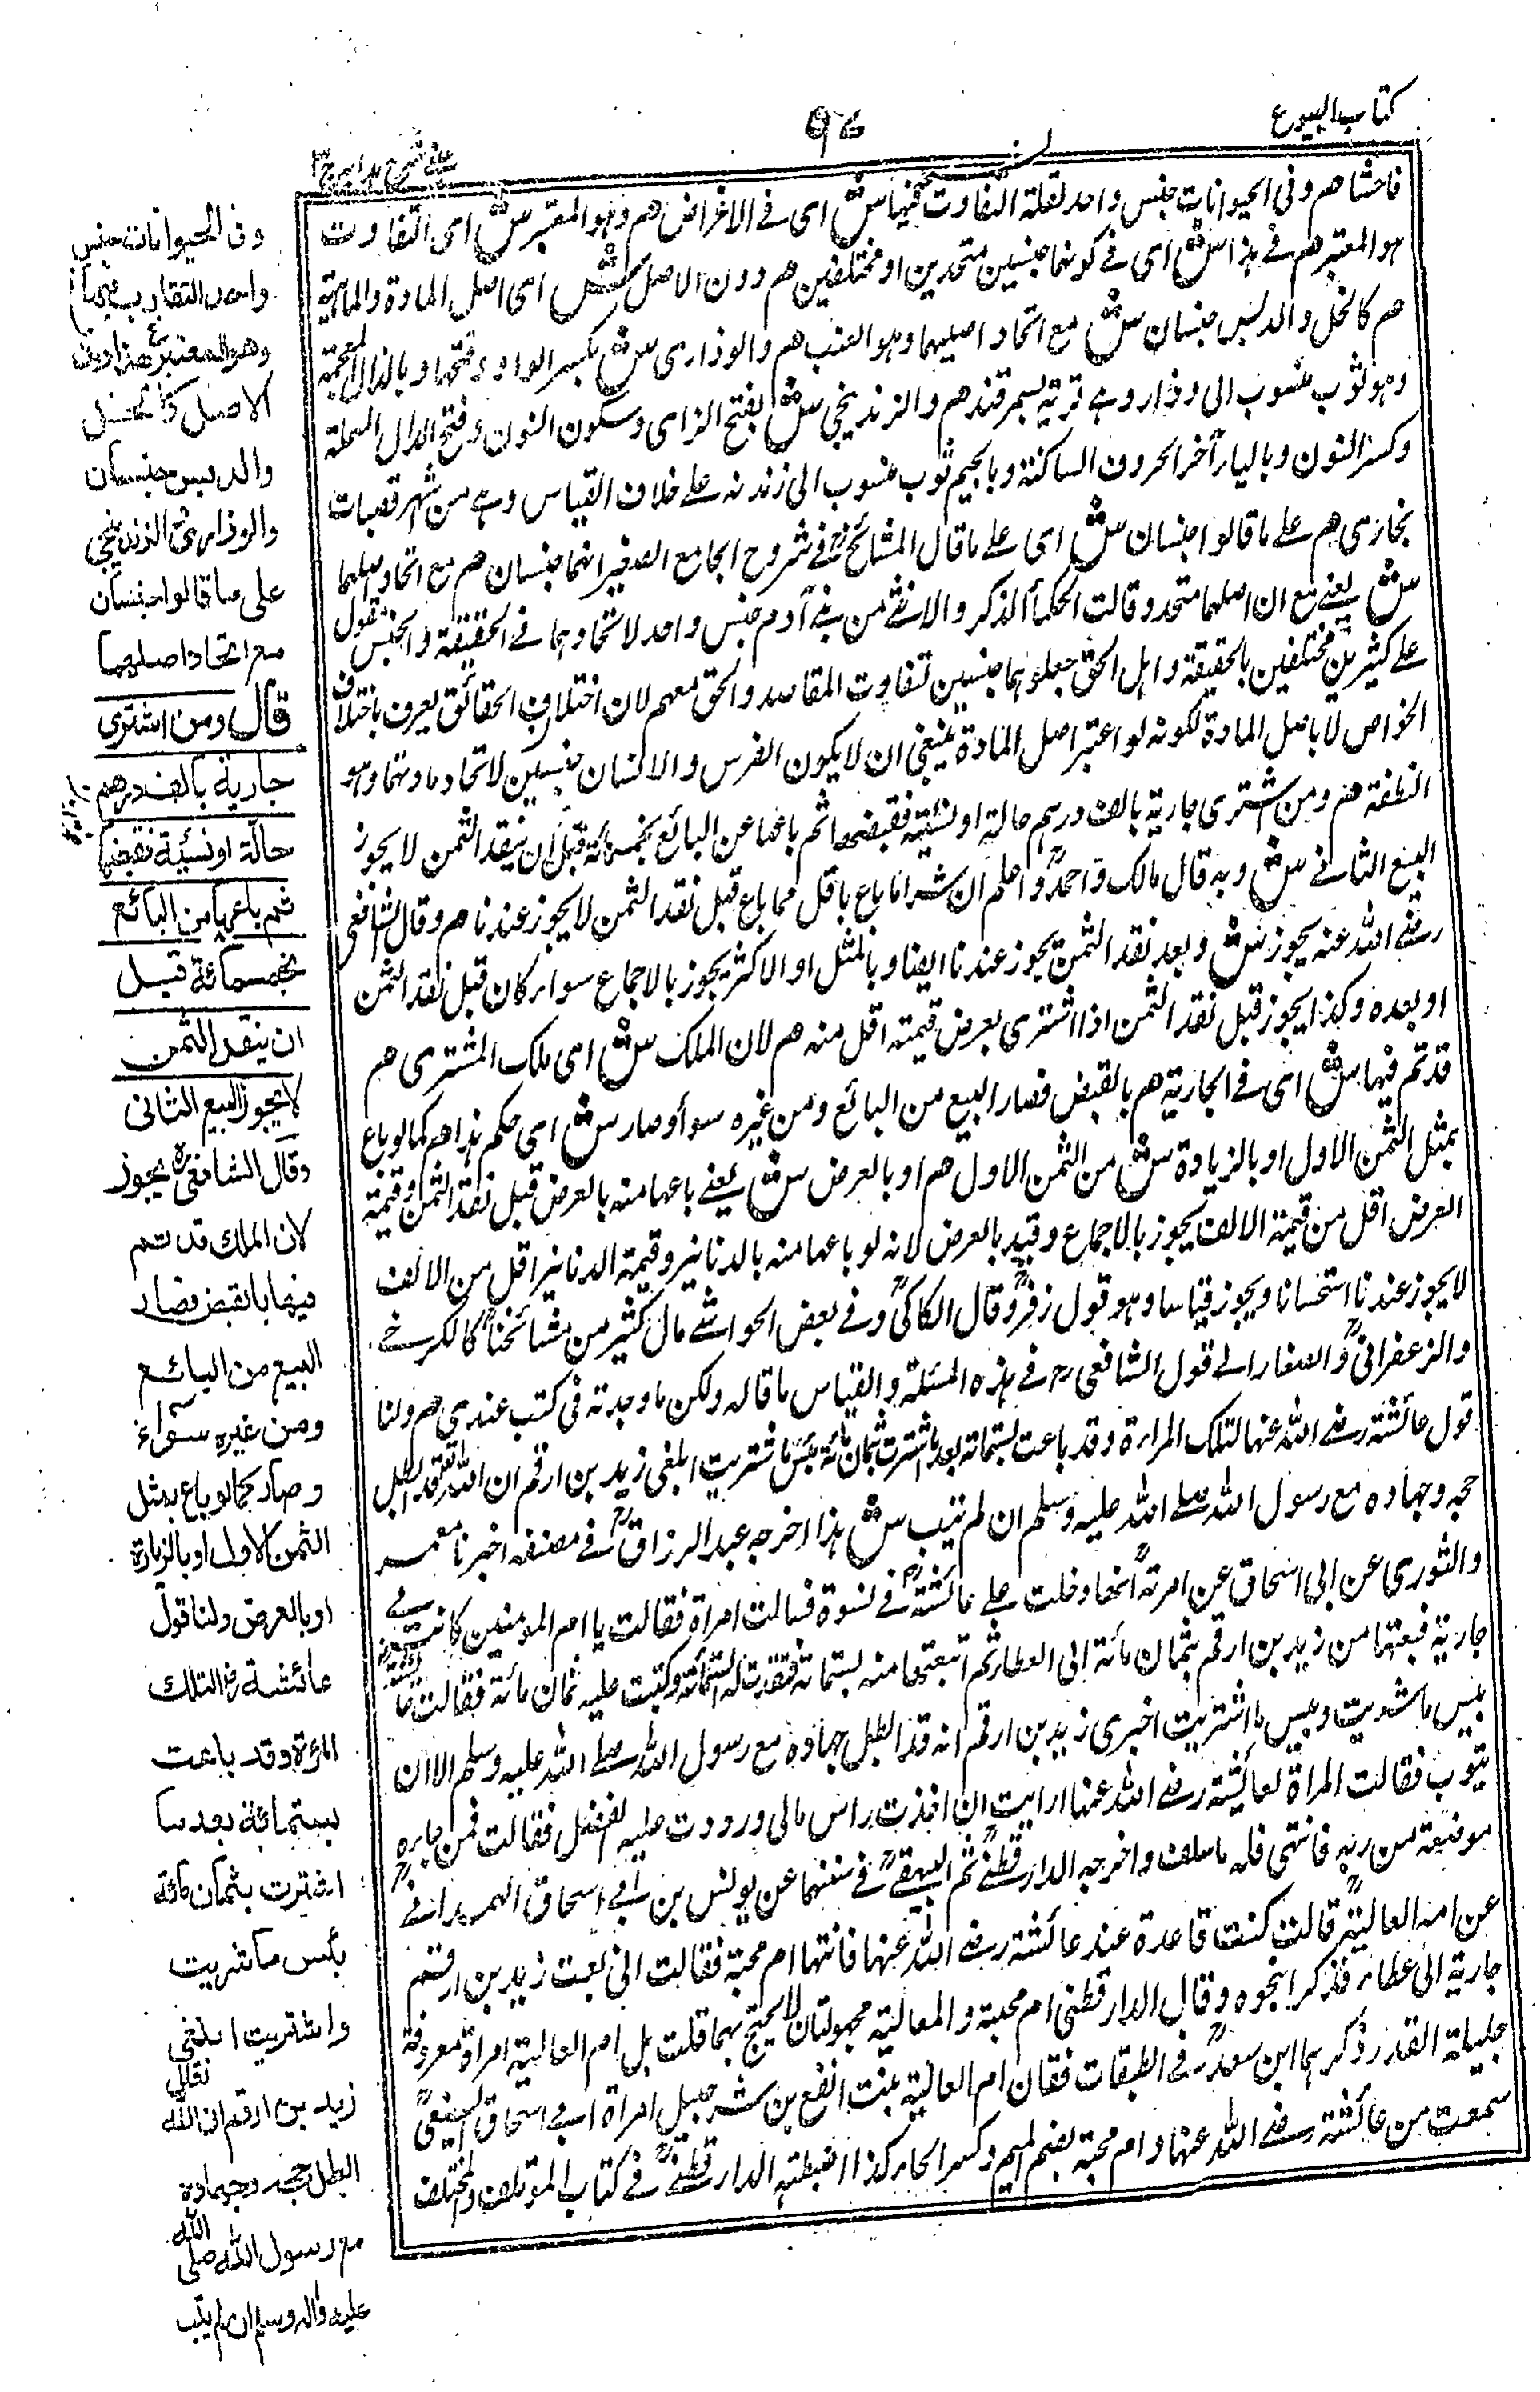 كتاب البيوع
٩٧
عينى شرح هدايه ج ٣
فاحشا هم وفي الحيوانات جنس واحد لقلة التفاوت فيها ش اى فى الاغراض هم وهو المعتبر ش اى التفاوت
هو المعتبر هم فى هذا ش اى فى كونهما جنسين متحدين او مختلفين هم دون الاصل ش اى اصل المادة والماهية
هم كالخل والدبس جنسان ش مع اتحاد اصليهما وهو العنب هم والوذارى ش بكسر الواو وفتحها وبالذال المعجمة
وهو ثوب منسوب الى وذار وهى قرية بسمرقند هم والزندنيجى ش بفتح الزاى وسكون النون وفتح الدال المهملة
وكسر النون وبالياء آخر الحروف الساكنة وبالجيم ثوب منسوب الى زندنه على خلاف القياس وهى من اشهر قصبات
بخارى هم على ما قالوا جنسان ش اى على ما قال المشائخ فى شروح الجامع الصغير انهما جنسان هم مع اتحاد اصليهما
ش يعنى مع ان اصلهما متحد وقالت الحكماء الذكر والانثى من بنى آدم جنس واحد لاتحادهما فى الحقيقة والجنس مقول
على كثيرين مختلفين بالحقيقة واهل الحق جعلوهما جنسين لتفاوت المقاصد والحق معهم لان اختلاف الحقائق يعرف باختلاف
الخواص لا باصل المادة لكونه لو اعتبر اصل المادة ينبغى ان لا يكون الفرس والانسان جنسين لاتحاد مادتهما وهو
النطفة هم ومن اشترى جارية بالف درهم حالة او نسيئة فقبضها ثم باعها من البائع بخمسمائة قبل ان ينقد الثمن لا يجوز
البيع الثانى ش وبه قال مالك واحمد واعلم ان شراء ما باع باقل مما باع قبل نقد الثمن لا يجوز عندنا هم وقال الشافعى
رضى الله عنه يجوز ش وبعد نقد الثمن يجوز عندنا ايضا وبالمثل او الاكثر يجوز بالاجماع سواء كان قبل نقد الثمن
او بعده وكذا يجوز قبل نقد الثمن اذا اشترى بعرض قيمته اقل منه هم لان الملك ش اى ملك المشترى هم
قد تم فيها ش اى فى الجارية هم بالقبض فصار البيع من البائع ومن غيره سواء وصار ش اى حكم هذا هم كما لو باع
بمثل الثمن الاول او بالزيادة ش من الثمن الاول هم او بالعرض ش يعنى باعها منه بالعرض قبل نقد الثمن وقيمة
العرض اقل من قيمة الالف يجوز بالاجماع وقيد بالعرض لانه لو باعها منه بالدنانير وقيمة الدنانير اقل من الالف
لا يجوز عندنا استحسانا ويجوز قياسا وهو قول زفر وقال الكاكى وفى بعض الحواشى مال كثير من مشائخنا كالكرخى
والزعفرانى والصفار الى قول الشافعى رح فى هذه المسئلة والقياس ما قاله ولكن ما وجدته فى كتب عندى هم ولنا
قول عائشة رضى الله عنها لتلك المراءة وقد باعت بستمائة بعد ما اشترت بثمان مائة بئس ما شتريت ابلغى زيد بن ارقم ان الله تعالى ابطل
حجه وجهاده مع رسول الله صلى الله عليه وسلم ان لم يتب ش هذا اخرجه عبد الرزاق فى مصنفه اخبرنا معمر
والثورى عن ابى اسحاق عن امرته انها دخلت على عائشة فى نسوة فسالت امراة فقالت يا ام المومنين كانت لى
جارية فبعتها من زيد بن ارقم بثمان مائة الى العطاء ثم ابتعتها منه بستمائة فنقدت له الستمائة وكتبت عليه ثمان مائة فقالت عائشة
بئس ما شريت وبئس ما اشتريت اخبرى زيد بن ارقم انه قد ابطل جهاده مع رسول الله صلى الله عليه وسلم الا ان
يتوب فقالت المراة لعائشة رضى الله عنها ارايت ان اخذت راس مالى ورددت عليه الفضل فقالت فمن جاءه
موعظة من ربه فانتهى فله ما سلف واخرجه الدارقطنى ثم البيهقى فى سننهما عن يونس بن ابى اسحاق الهمدانى
عن امه العالية قالت كنت قاعدة عند عائشة رضى الله عنها فاتتها ام محبة فقالت انى بعت زيد بن ارقم
جارية الى عطاء فذكرا نحوه وقال الدارقطنى ام محبة والعالية مجهولتان لا يحتج بهما قلت بل ام العالية امراة معروفة
جليلة القدر ذكرها ابن سعد فى الطبقات فقال ام العالية بنت انفع بن شرحبيل امراة ابى اسحاق السبيعى
سمعت من عائشة رضى الله عنها وام محبة بضم الميم وكسر الحاء كذا ضبطته الدارقطنى فى كتاب الموتلف والمختلف
وفى الحيوانات جنس
واحد التقارب فيها
وهو المعتبر فى هذا دون
الاصل كالخل
والدبس جنسان
والوذارى الزندنيجى
على ما قالوا جنسان
مع اتحاد اصليهما
قال ومن اشترى
جارية بالف درهم
حالة او نسيئة فقبضها
ثم باعها من البائع
بخمسمائة قبل
ان ينقد الثمن
لا يجوز البيع الثانى
وقال الشافعى رح يجوز
لان الملك قد تم
فيها بالقبض فصار
البيع من البائع
ومن غيره سواء
وصار كما لو باع بمثل
الثمن الاول او بالزيادة
او بالعرض ولنا قول
عائشة رض لتلك
المرءة وقد باعت
بستمائة بعد ما
اشترت بثمان مائة
بئس ما شريت
واشتريت ابلغى
زيد بن ارقم ان الله تعالى
ابطل حجه وجهاده
مع رسول الله صلى الله
عليه واله وسلم ان لم يتب